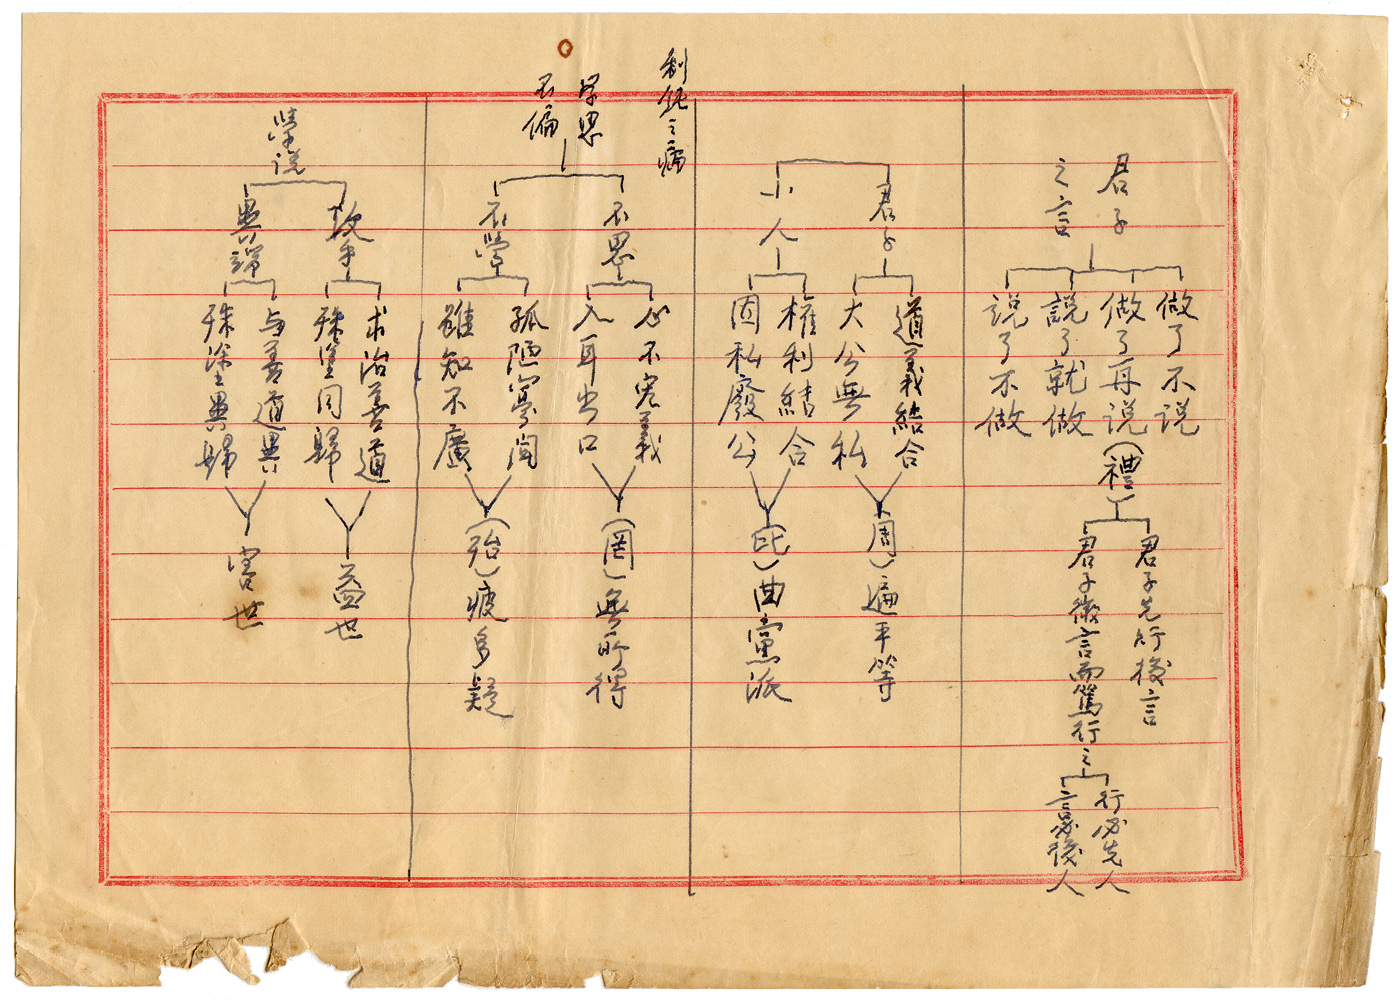 君子
之言
做了不说
做了再说(禮)
説了就做
说了不做
君子先行後言
君子微言而篤行之
行必先人
言必後人
君子
道義結合
大公無私
(周)遍平等
小人
權利結合
因私廢公
(比)曲黨派
利鈍之病
学思
不偏
不思
心不究義
入耳出口
(罔)無所得
不學
孤陋寡聞
雖知不廣
(殆)疲多疑
學说
攻乎
求治善道
殊塗同歸
益世
異端
与善道異
殊塗異歸
害世